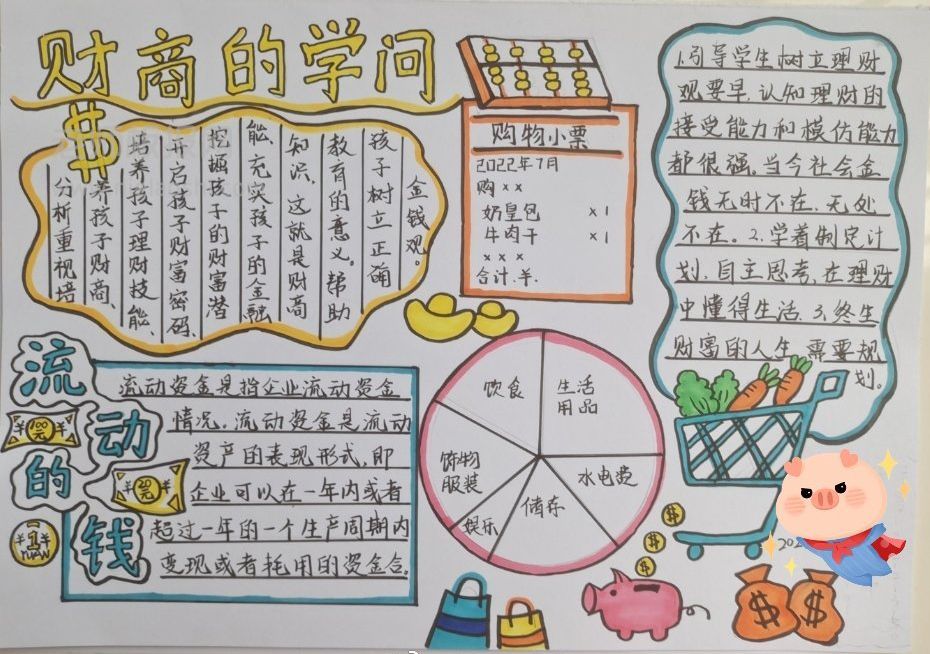 财商的学问
$
分析重视培
养孩子财商、
培养孩子理财技能、
开启孩子财富密码、
挖掘孩子的财富潜
能、充实孩子的金融
知识,这就是财商
教育的意义。帮助
孩子树立正确
金钱观。
购物小票
2022年7月
购××
奶皇包 ×1
牛肉干 ×1
×××
合计.¥.
1.引导学生树立理财
观要早.认知理财的
接受能力和模仿能力
都很强。当今社会金
钱无时不在.无处
不在。2.学着制定计
划.自主思考,在理财
中懂得生活.3.终生
财富的人生.需要规
划。
流动的钱
¥ 100元 ¥
¥ 20元 ¥
¥ 1 ¥
YUAN
流动资金是指企业流动资金
情况.流动资金是流动
资产的表现形式,即
企业可以在一年内或者
超过一年的一个生产周期内
变现或者耗用的资金合。
饮食
生活
用品
饰物
服装
水电费
储存
娱乐
$
$
$
$ $